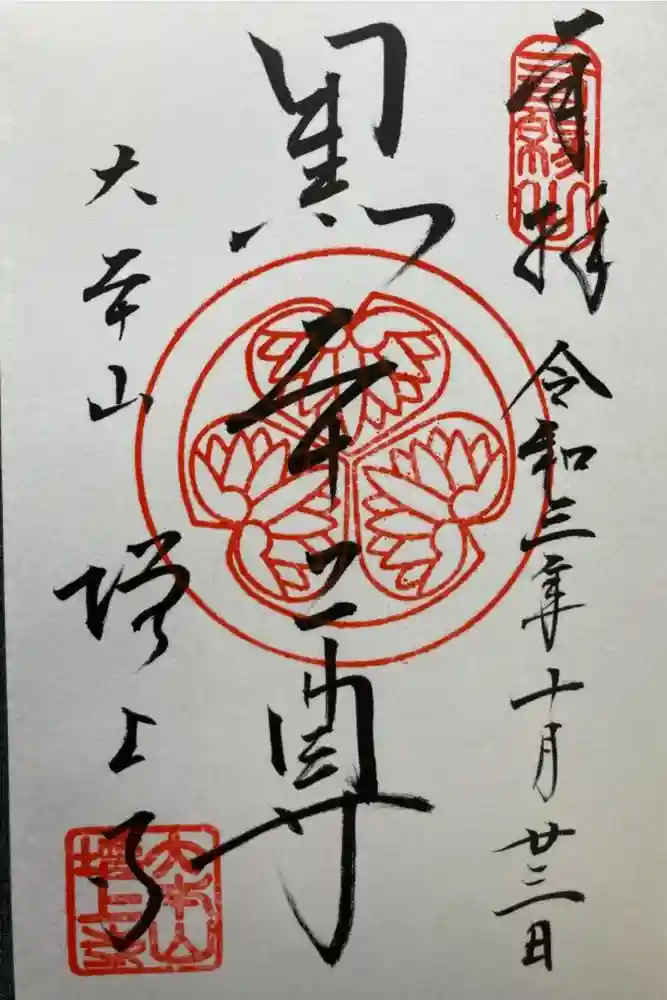 奉拝
令和三年十月廿三日
黒本尊
大本山
増上寺
三縁山
大本山
増上寺